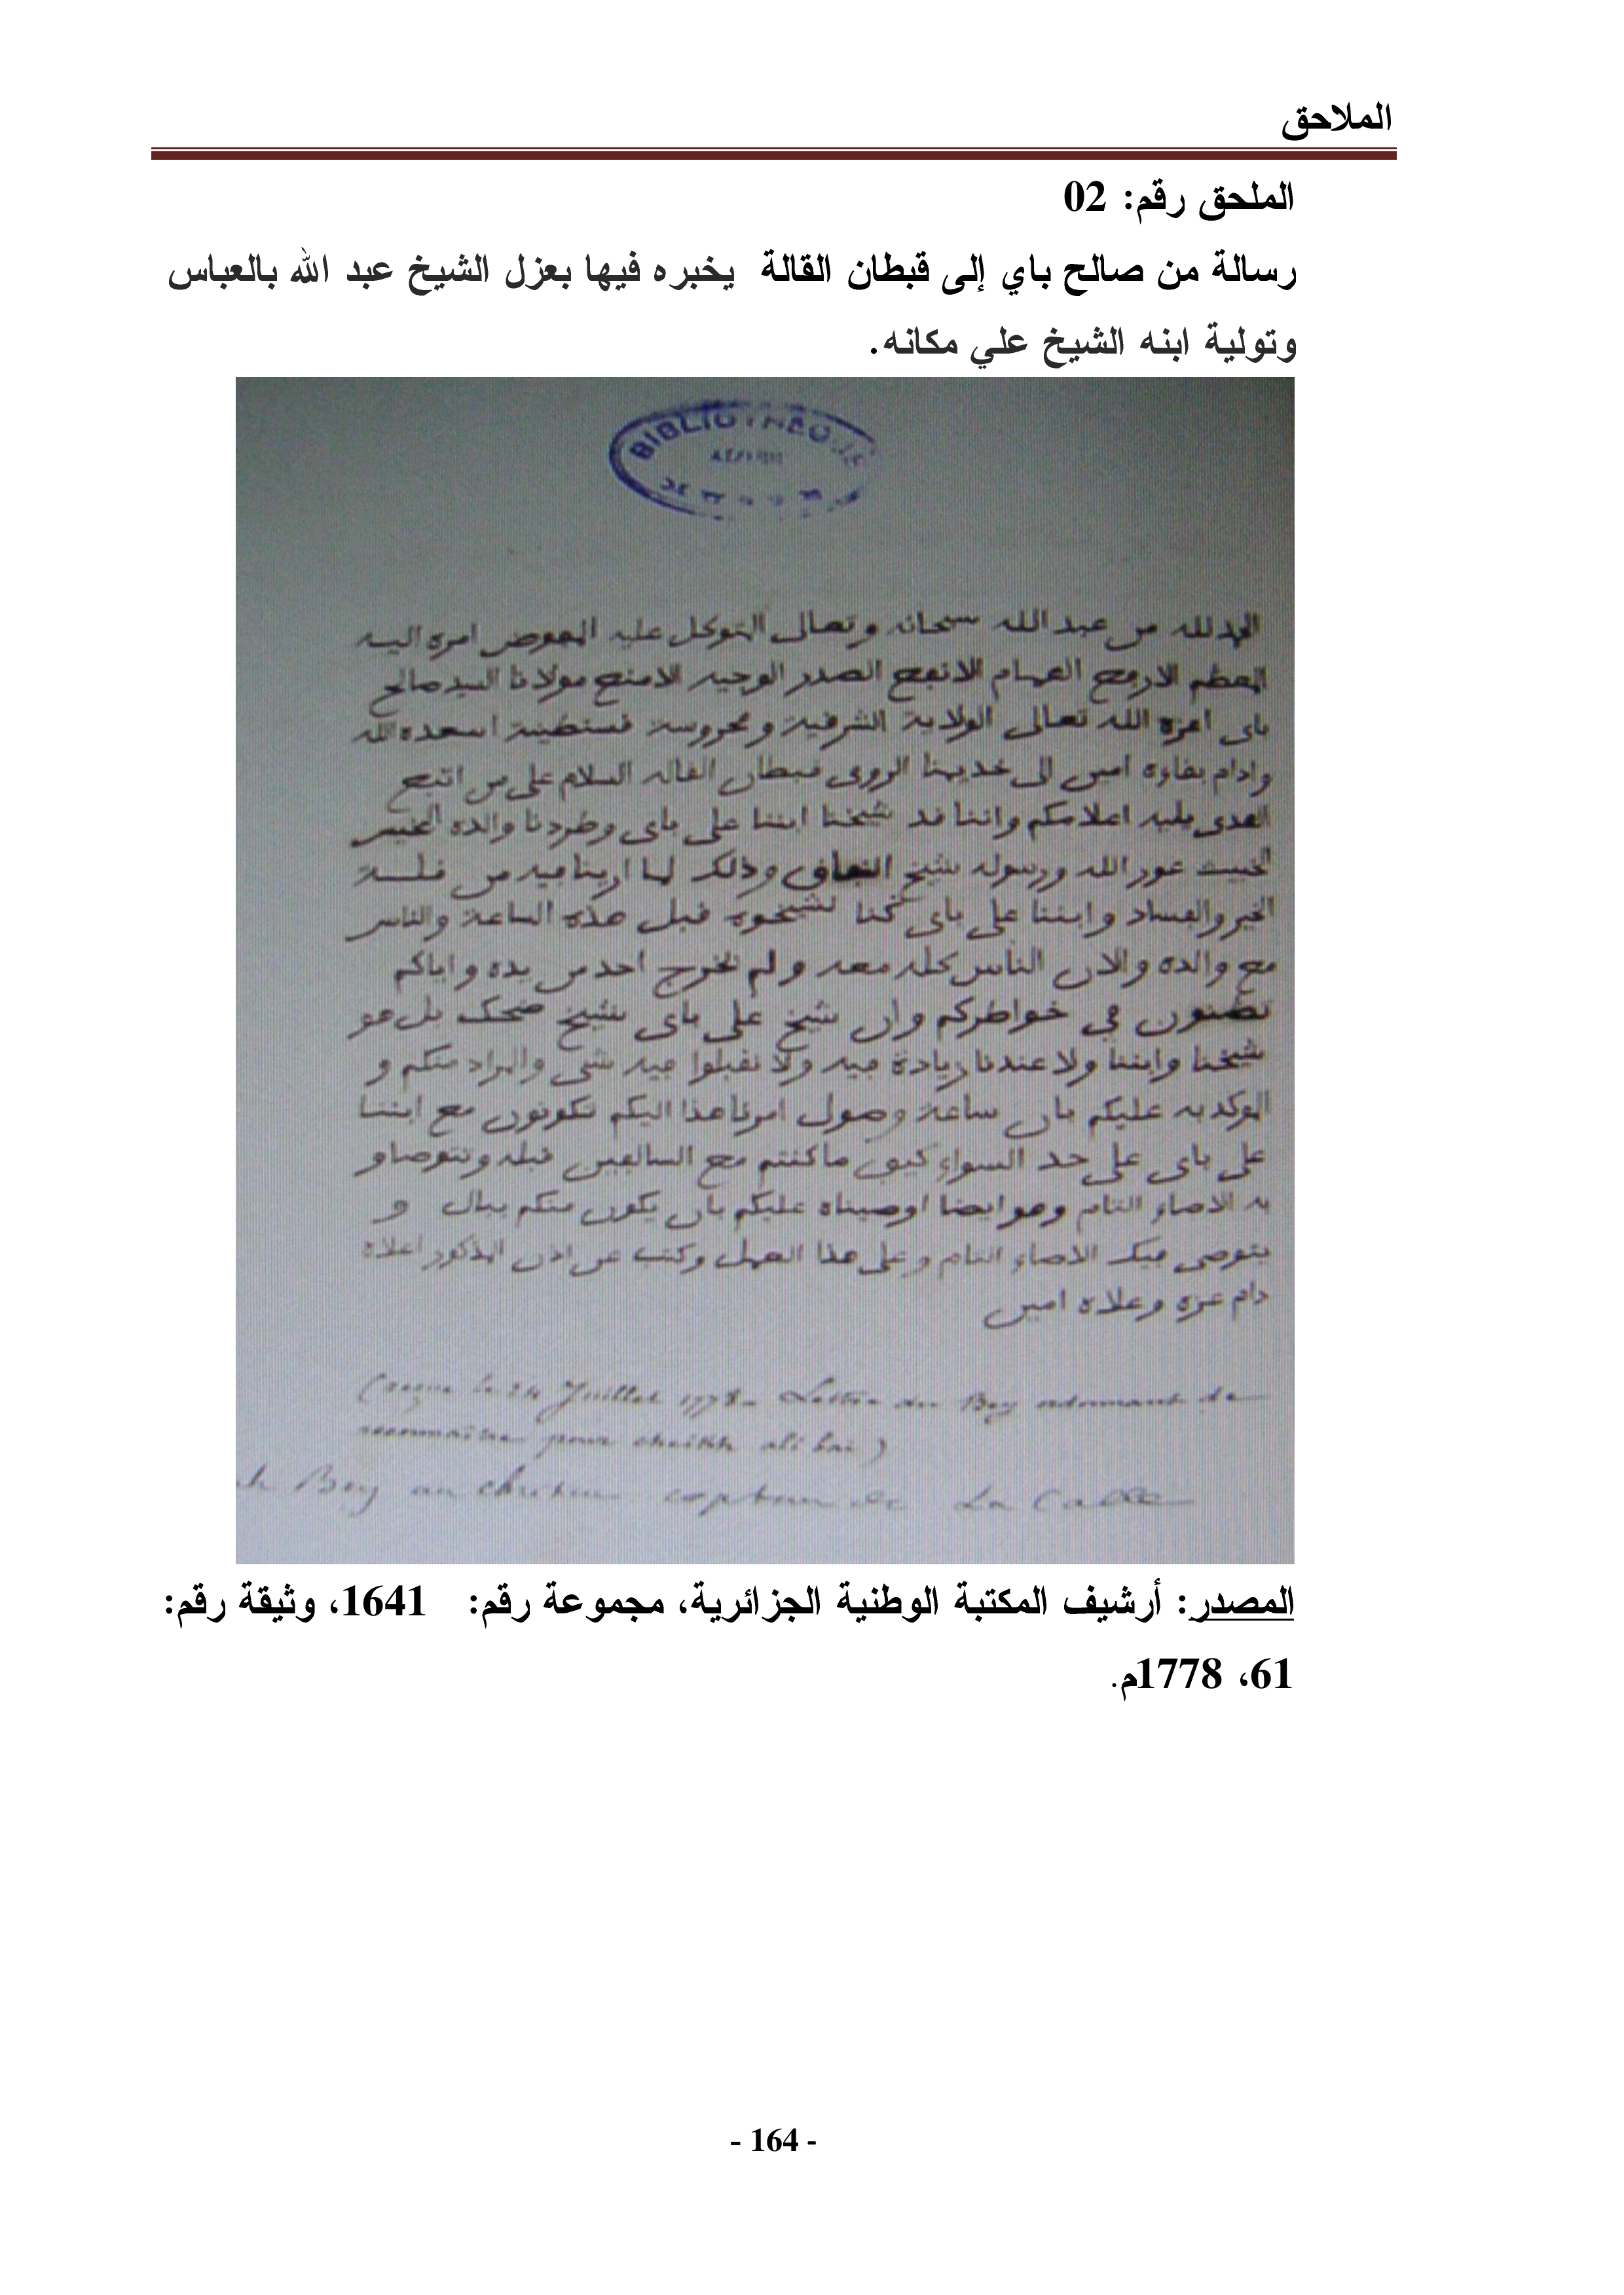 الملاحق
الملحق رقم: 02
رسالة من صالح باي إلى قبطان القالة يخبره فيها بعزل الشيخ عبد الله بالعباس
وتولية ابنه الشيخ علي مكانه.
BIBLIOTHEQUE
الحمد لله من عبد الله سبحانه وتعالى المتوكل عليه المفوض امره اليه
المعظم الارفع الهمام الانفع الصدر الوجيه الامنع مولانا السيد صالح
باي امره الله تعالى الولاية الشرقية ومحروسة قسنطينة اسعده الله
وادام بقاوه امين الى خديمنا الرومي قبطان القاله السلام على من اتبع
الهدى يليه اعلامكم واننا قد شيخنا ابننا علي باي وطردنا والده
الخبيث عدو الله ورسوله شيخ النفاق وذلك لما ارينا فيه من قلة
الخير والفساد وابننا علي باي كنا نشيخوه قبل هذه الساعة والناس
مع والده والان الناس كله معه ولم يخرج احد من يده واياكم
تضنون في خواطركم وان شيخ علي باي شيخ ضحك بل هو
شيخنا وابننا ولا عندنا زيادة فيه ولا نقبلوا فيه شي والمراد منكم و
الموكد به عليكم بان ساعة وصول امرنا هذا اليكم تكونون مع ابننا
علي باي على حد السواء كيف ما كنتم مع السالفين قبله وتتوصاو
به الاصاء التام وهو ايضا اوصيناه عليكم بان يكون منكم ببال و
يتوصى فيك الاصاء التام وعلى هذا العمل وكتب عن اذن المذكور اعلاه
دام عزه وعلاه امين
(reçue le 24 Juillet 1778 - Lettre du Bey ordonnant de
reconnaitre pour cheikh ali bai)
Bey au chretien capitan de La Calle
المصدر: أرشيف المكتبة الوطنية الجزائرية، مجموعة رقم: 1641، وثيقة رقم:
61، 1778م.
- 164 -